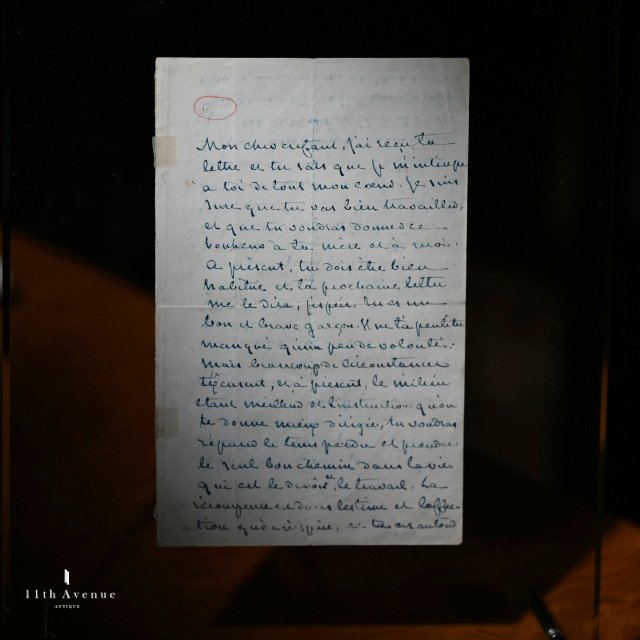 Mon cher enfant, j'ai reçu ta
lettre et tu sais que je m'intéresse
à toi de tout mon cœur. Je suis
sure que tu vas bien travailler,
et que tu voudras donner ce
bonheur à ta mère et à moi.
A présent, tu dois être bien
habitué et ta prochaine lettre
me le dira, j'espère. Tu es un
bon et brave garçon. Il ne t'a peut être
manqué qu'un peu de volonté.
mais beaucoup de circonstances
t'excusent, et à présent, le milieu
étant meilleur et l'instruction qu'on
te donne mieux dirigée, tu voudras
réparer le tems perdu et prendre
le seul bon chemin dans la vie
qui est le devoir et le travail. La
récompense est dans l'estime et l'affec-
tion qu'on inspire, et tu as autour
11th Avenue
ANTIQUE